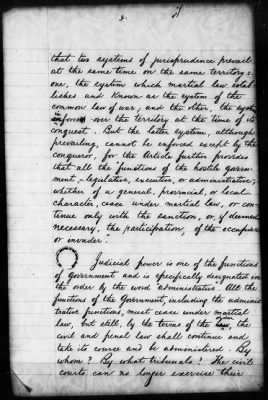 2.
that two systems of jurisprudence prevail
at the same time on the same territory:
one, the system which martial law estab-
lishes and known as the system of the
common law of war; and the other, the system
in force over the territory at the time of its
conquest. But the latter system, although
prevailing, cannot be enforced except by the
conqueror, for the Article further provides
that all the functions of the hostile govern-
ment,- legislative, executive, or administrative,-
whether of a general, provincial, or local
character, cease under martial law, or con-
tinue only with the sanction, or, if deemed
necessary, the participation, of the occupier
or invader."
Judicial power is one of the functions
of government and is specifically designated in
the order by the word "administrative". All the
functions of the Government, including the adminis-
trative functions, must cease under martial
law, but still, by the terms of the order, the
civil and penal law shall continue and
take its course and be administered. By
whom? By what tribunals? The civil
courts can no longer exercise their